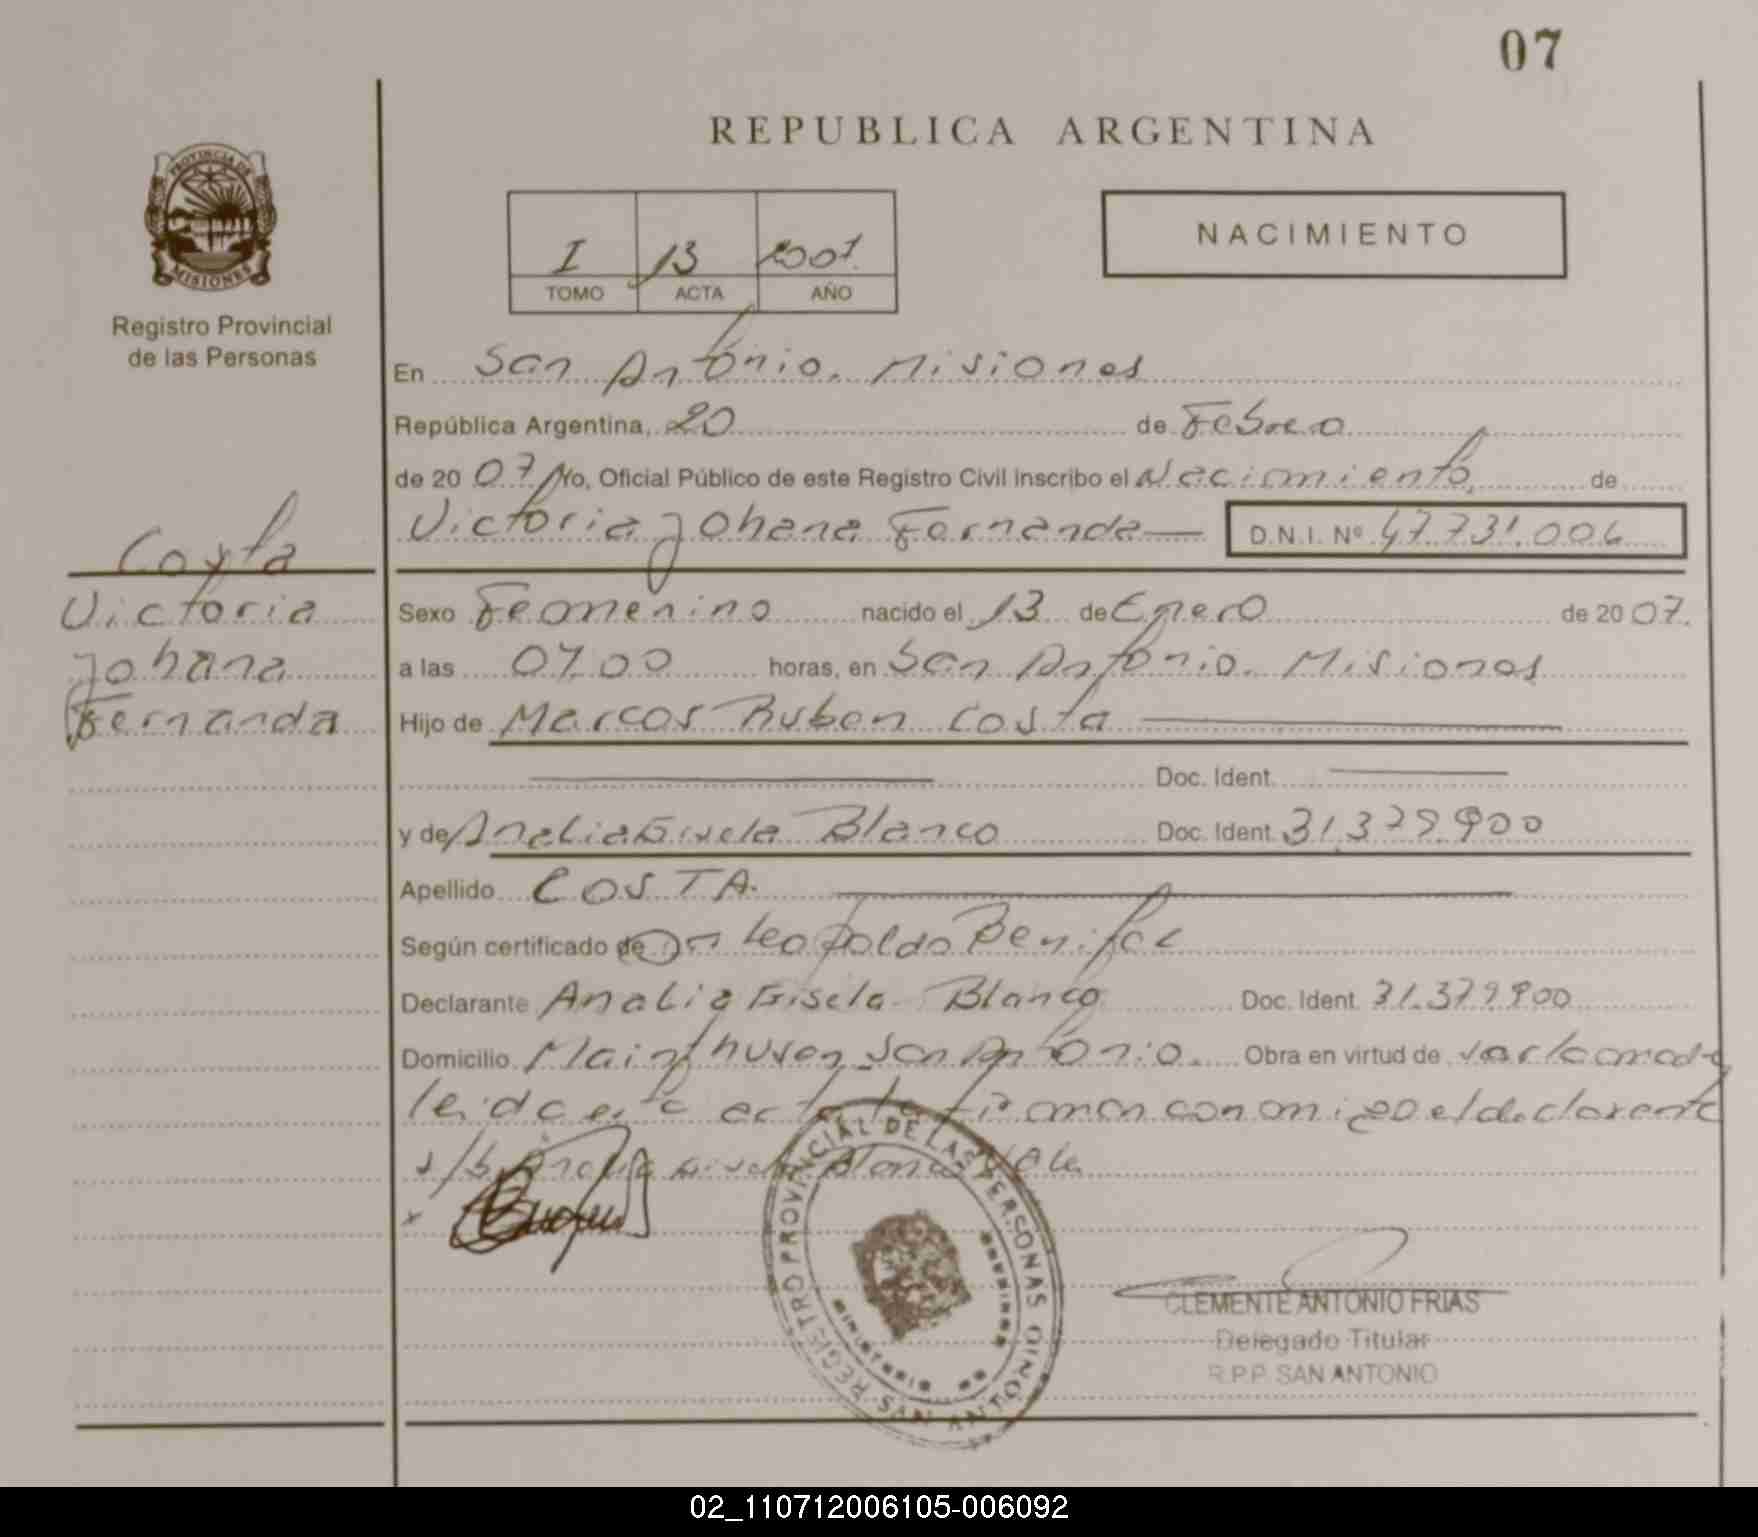 07
REPUBLICA ARGENTINA
PROVINCIA DE
MISIONES
Registro Provincial
de las Personas
I 13 2007
TOMO ACTA AÑO
NACIMIENTO
En San Antonio. Misiones
República Argentina, 20 de Febrero
de 20 07 Yo, Oficial Público de este Registro Civil Inscribo el Nacimiento, de
Victoria Johana Fernanda D.N.I. Nº 47.731.006
Costa
Victoria
Johana
Fernanda
Sexo Femenino nacido el 13 de Enero de 20 07.
a las 07.00 horas, en San Antonio. Misiones
Hijo de Marcos Ruben Costa
Doc. Ident.
y de Analia Gisela Blanco Doc. Ident. 31.379.900
Apellido COSTA.
Según certificado de Dr Leopoldo Benifac
Declarante Analia Gisela Blanco Doc. Ident. 31.379.900
Domicilio Mainthusen San Antonio. Obra en virtud de
leida esta acta la firman con migo el declarante
Analia Gisela Blanco Vale
REGISTRO PROVINCIAL DE LAS PERSONAS
SAN ANTONIO
CLEMENTE ANTONIO FRIAS
Delegado Titular
R.P.P. SAN ANTONIO
02_110712006105-006092